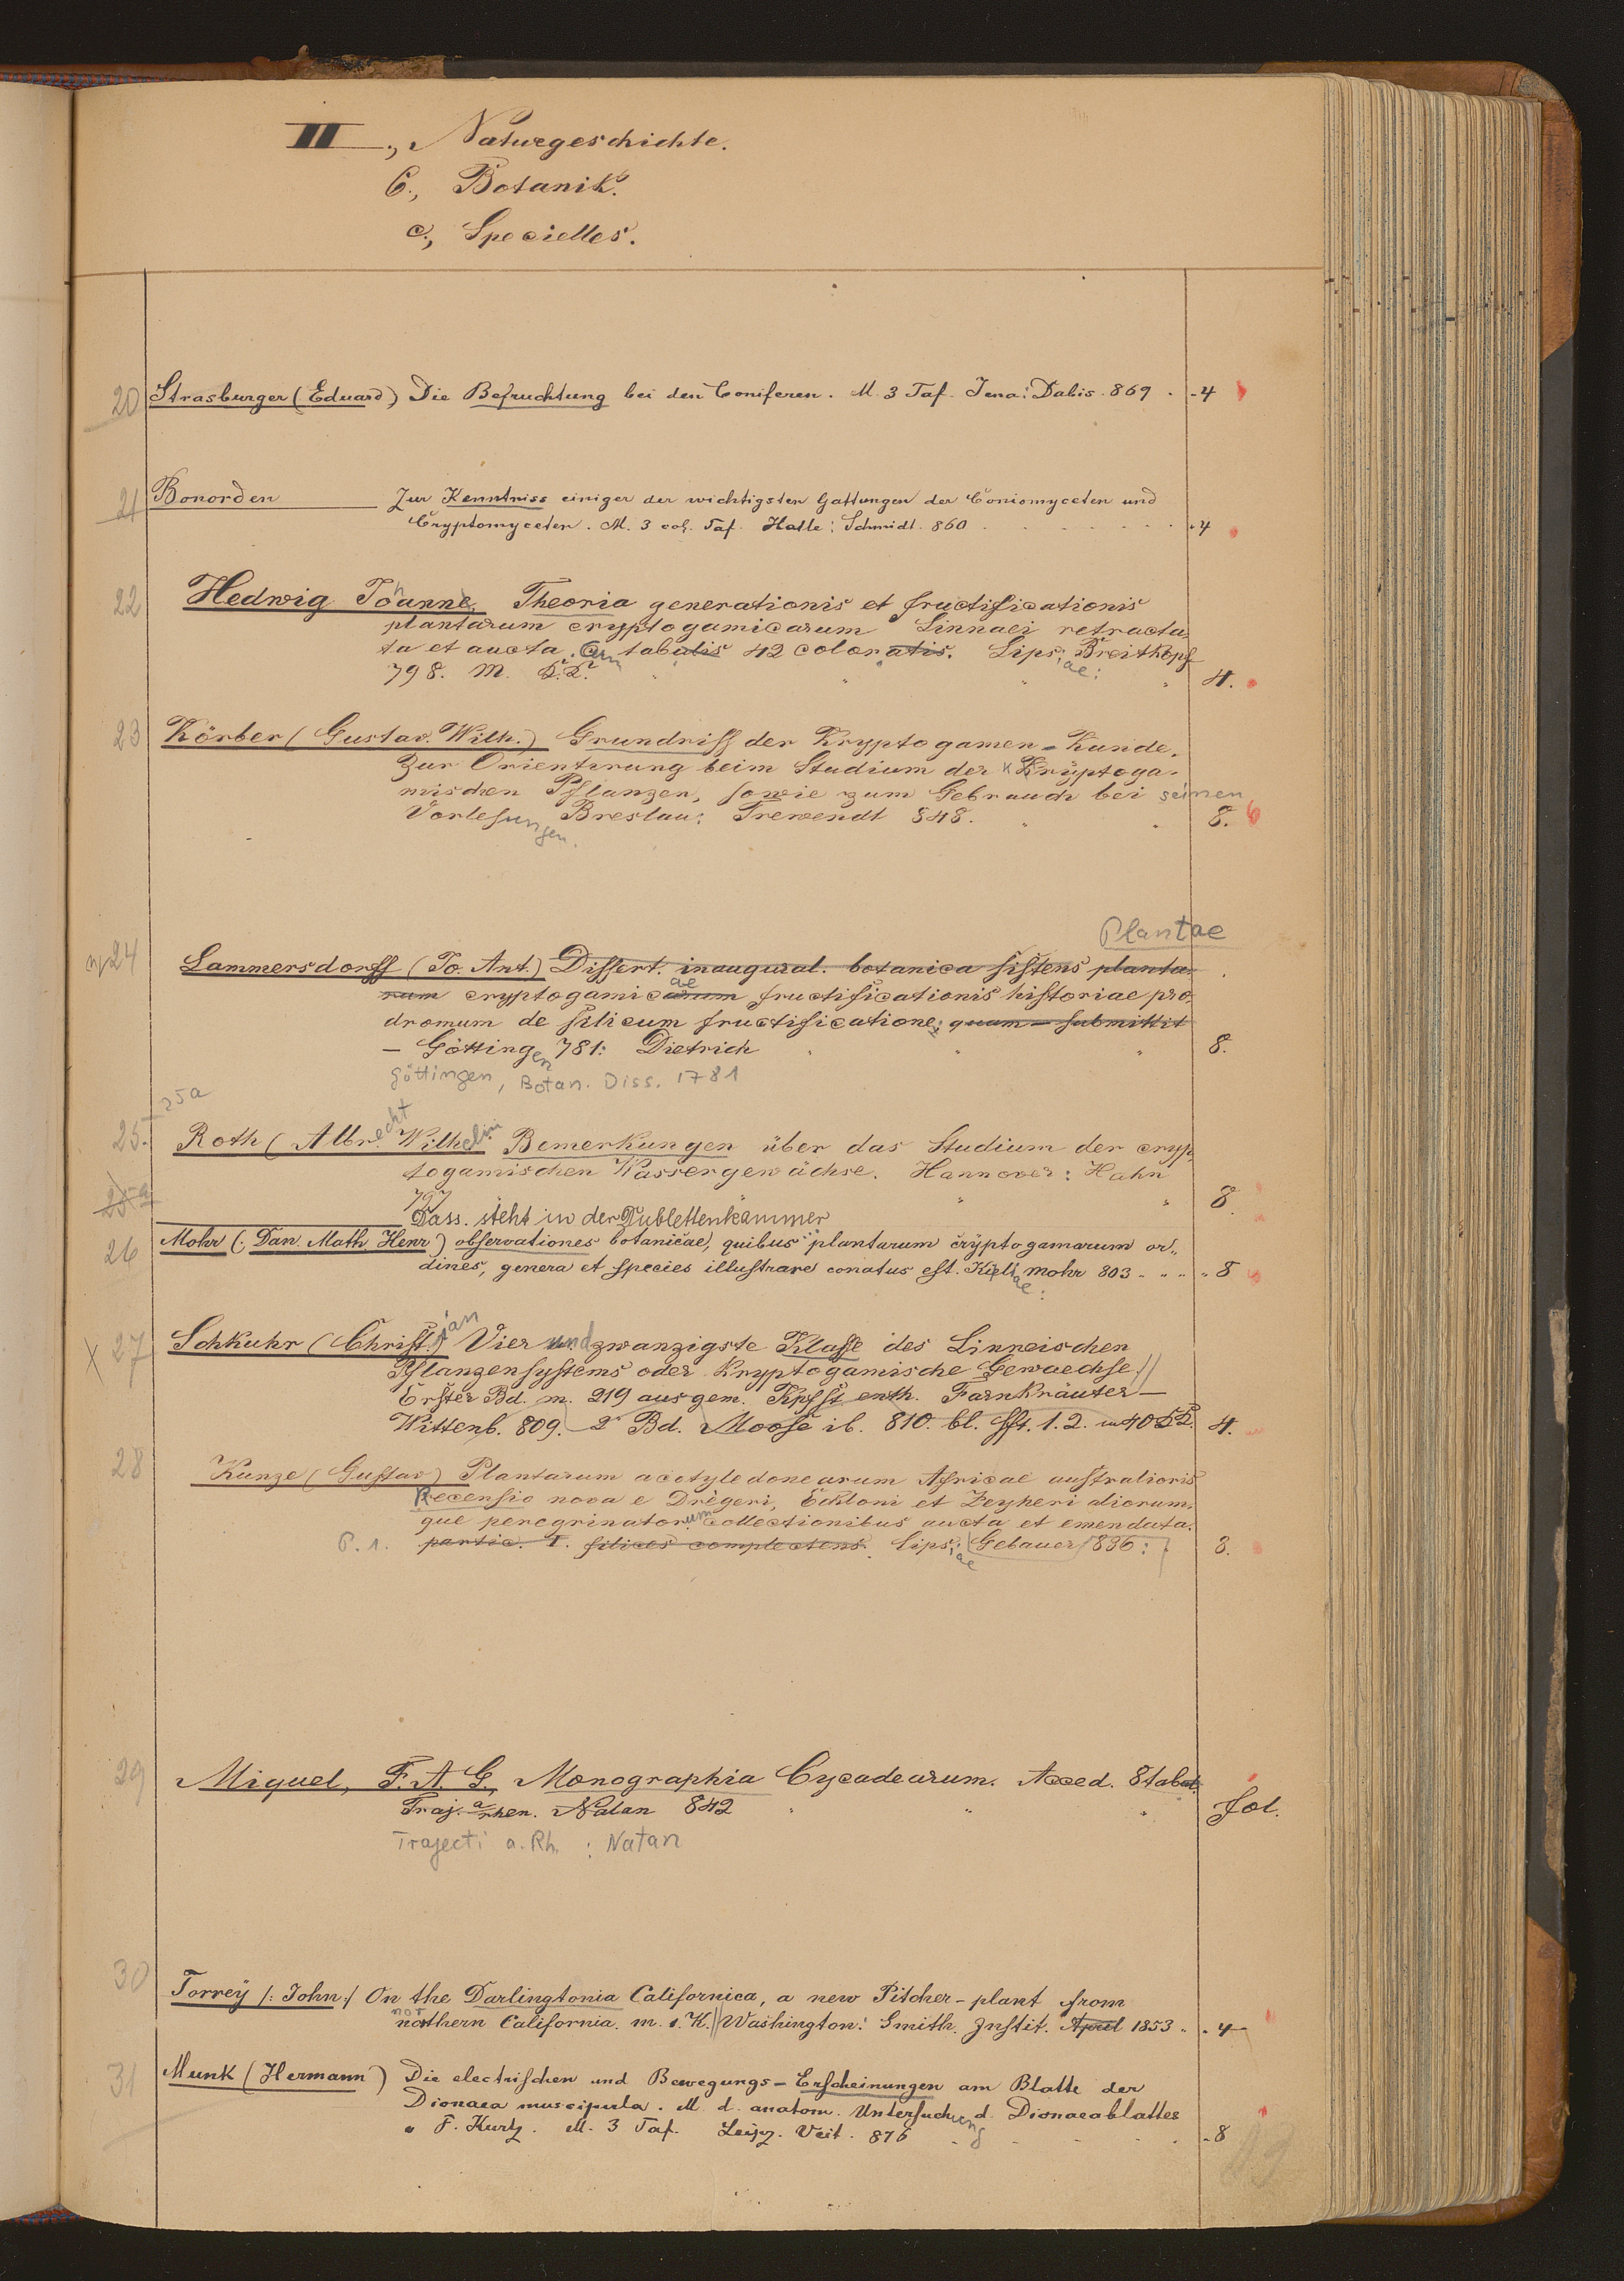 II., Naturgeschichte.
C., Botanik.
c., Specielles.
20 Strasburger (Eduard) Die Befruchtung bei den Coniferen. M. 3 Taf. Jena: Dabis. 869 . - 4
21 Bonorden Zur Kenntniss einiger der wichtigsten Gattungen der Coniomyceten und
Cryptomyceten. M. 3 col. Taf. Halle: Schmidt. 860 . . . . . . 4
22 Hedwig Johanne, Theoria generationis et fructificationis
plantarum cryptogamicarum Linnaei retracta
ta et aucta. Cum tabulis 42 coloratis. Lipsiae: Breitkopf
798. M. 4.
23 Körber (Gustav. Wilh.) Grundriss der Kryptogamen-Kunde.
Zur Orientirung beim Studium der Kryptoga-
mischen Pflanzen, sowie zum Gebrauch bei seinen
Vorlesungen. Breslau: Trewendt 848. 8.
Plantae
24 Lammersdorff (Jo. Ant.) Dissert. inaugural. botanica sistens planta-
rum cryptogamicarum ae fructificationis historiae pro
dromum de filicum fructificatione; quam - submittit
- Göttingen 781: Dietrich 8.
Göttingen, Botan. Diss. 1781
25a
25. Roth (Albrecht Wilhelm Bemerkungen über das Studium der cryp
togamischen Wassergewächse. Hannover: Hahn
25a 797 8.
Dass. steht in der Dublettenkammer
26 Mohr (: Dan. Math. Henr) observationes botanicae, quibus plantarum cryptogamarum or-
dines, genera et species illustrare conatus est. Kiliae: Mohr 803 - " " " 8
X 27 Schkuhr (Christian) Vier und zwanzigste Klasse des Linneischen
Pflanzensystems oder Kryptogamische Gewaechse.
Erster Bd. m. 219 ausgem. Kpfst enth. Farnkräuter —
Wittenb. 809. 2r Bd. Moose ib. 810. bl. Hft. 1. 2. m 40 4.
28 Kunze (Gustav) Plantarum acotyledonearum Africae australioris
Recensio nova e Drègeri, Eckloni et Zeyheri aliorum-
que peregrinatorum collectionibus aucta et emendata.
P. 1. partic. I. filices complectens. Lipsiae: Gebauer 836: 8.
29 Miquel, F. A. G. Monographia Cycadearum. Acced. 8 tabul.
Traj. a rhen. Natan 842 fol.
Trajecti a. Rh. : Natan
30 Torrey /: John :/ On the Darlingtonia Californica, a new Pitcher-plant from
northern California. m. 1. K. Washington: Smith. Instit. April 1853 . . 4
31 Munk (Hermann) Die electrischen und Bewegungs-Erscheinungen am Blatte der
Dionaea muscipula. M. d. anatom. Untersuchung d. Dionaeablattes
F. Kurtz. M. 3 Taf. Leipz. Veit. 876 . . . . . 8